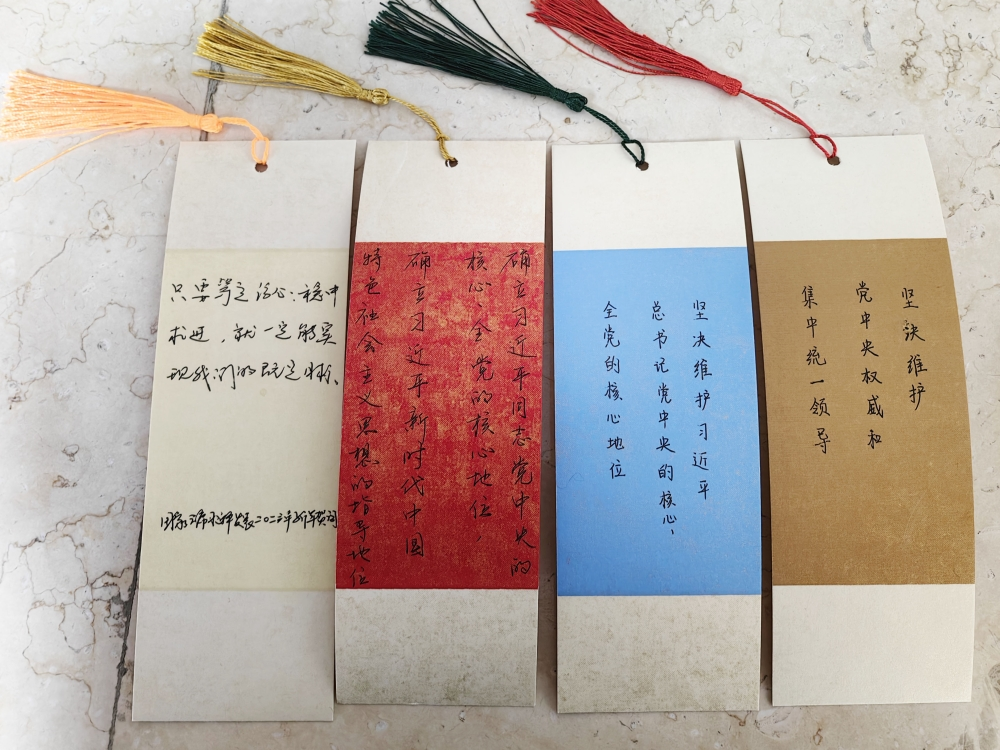 只要笃定信心、稳中
求进，就一定能实
现我们的既定目标、
国家主席习近平发表二〇二三年新年贺词
确立习近平同志党中央的
核心、全党的核心地位，
确立习近平新时代中国
特色社会主义思想的指导地位
坚决维护习近平
总书记党中央的核心、
全党的核心地位
坚决维护
党中央权威和
集中统一领导